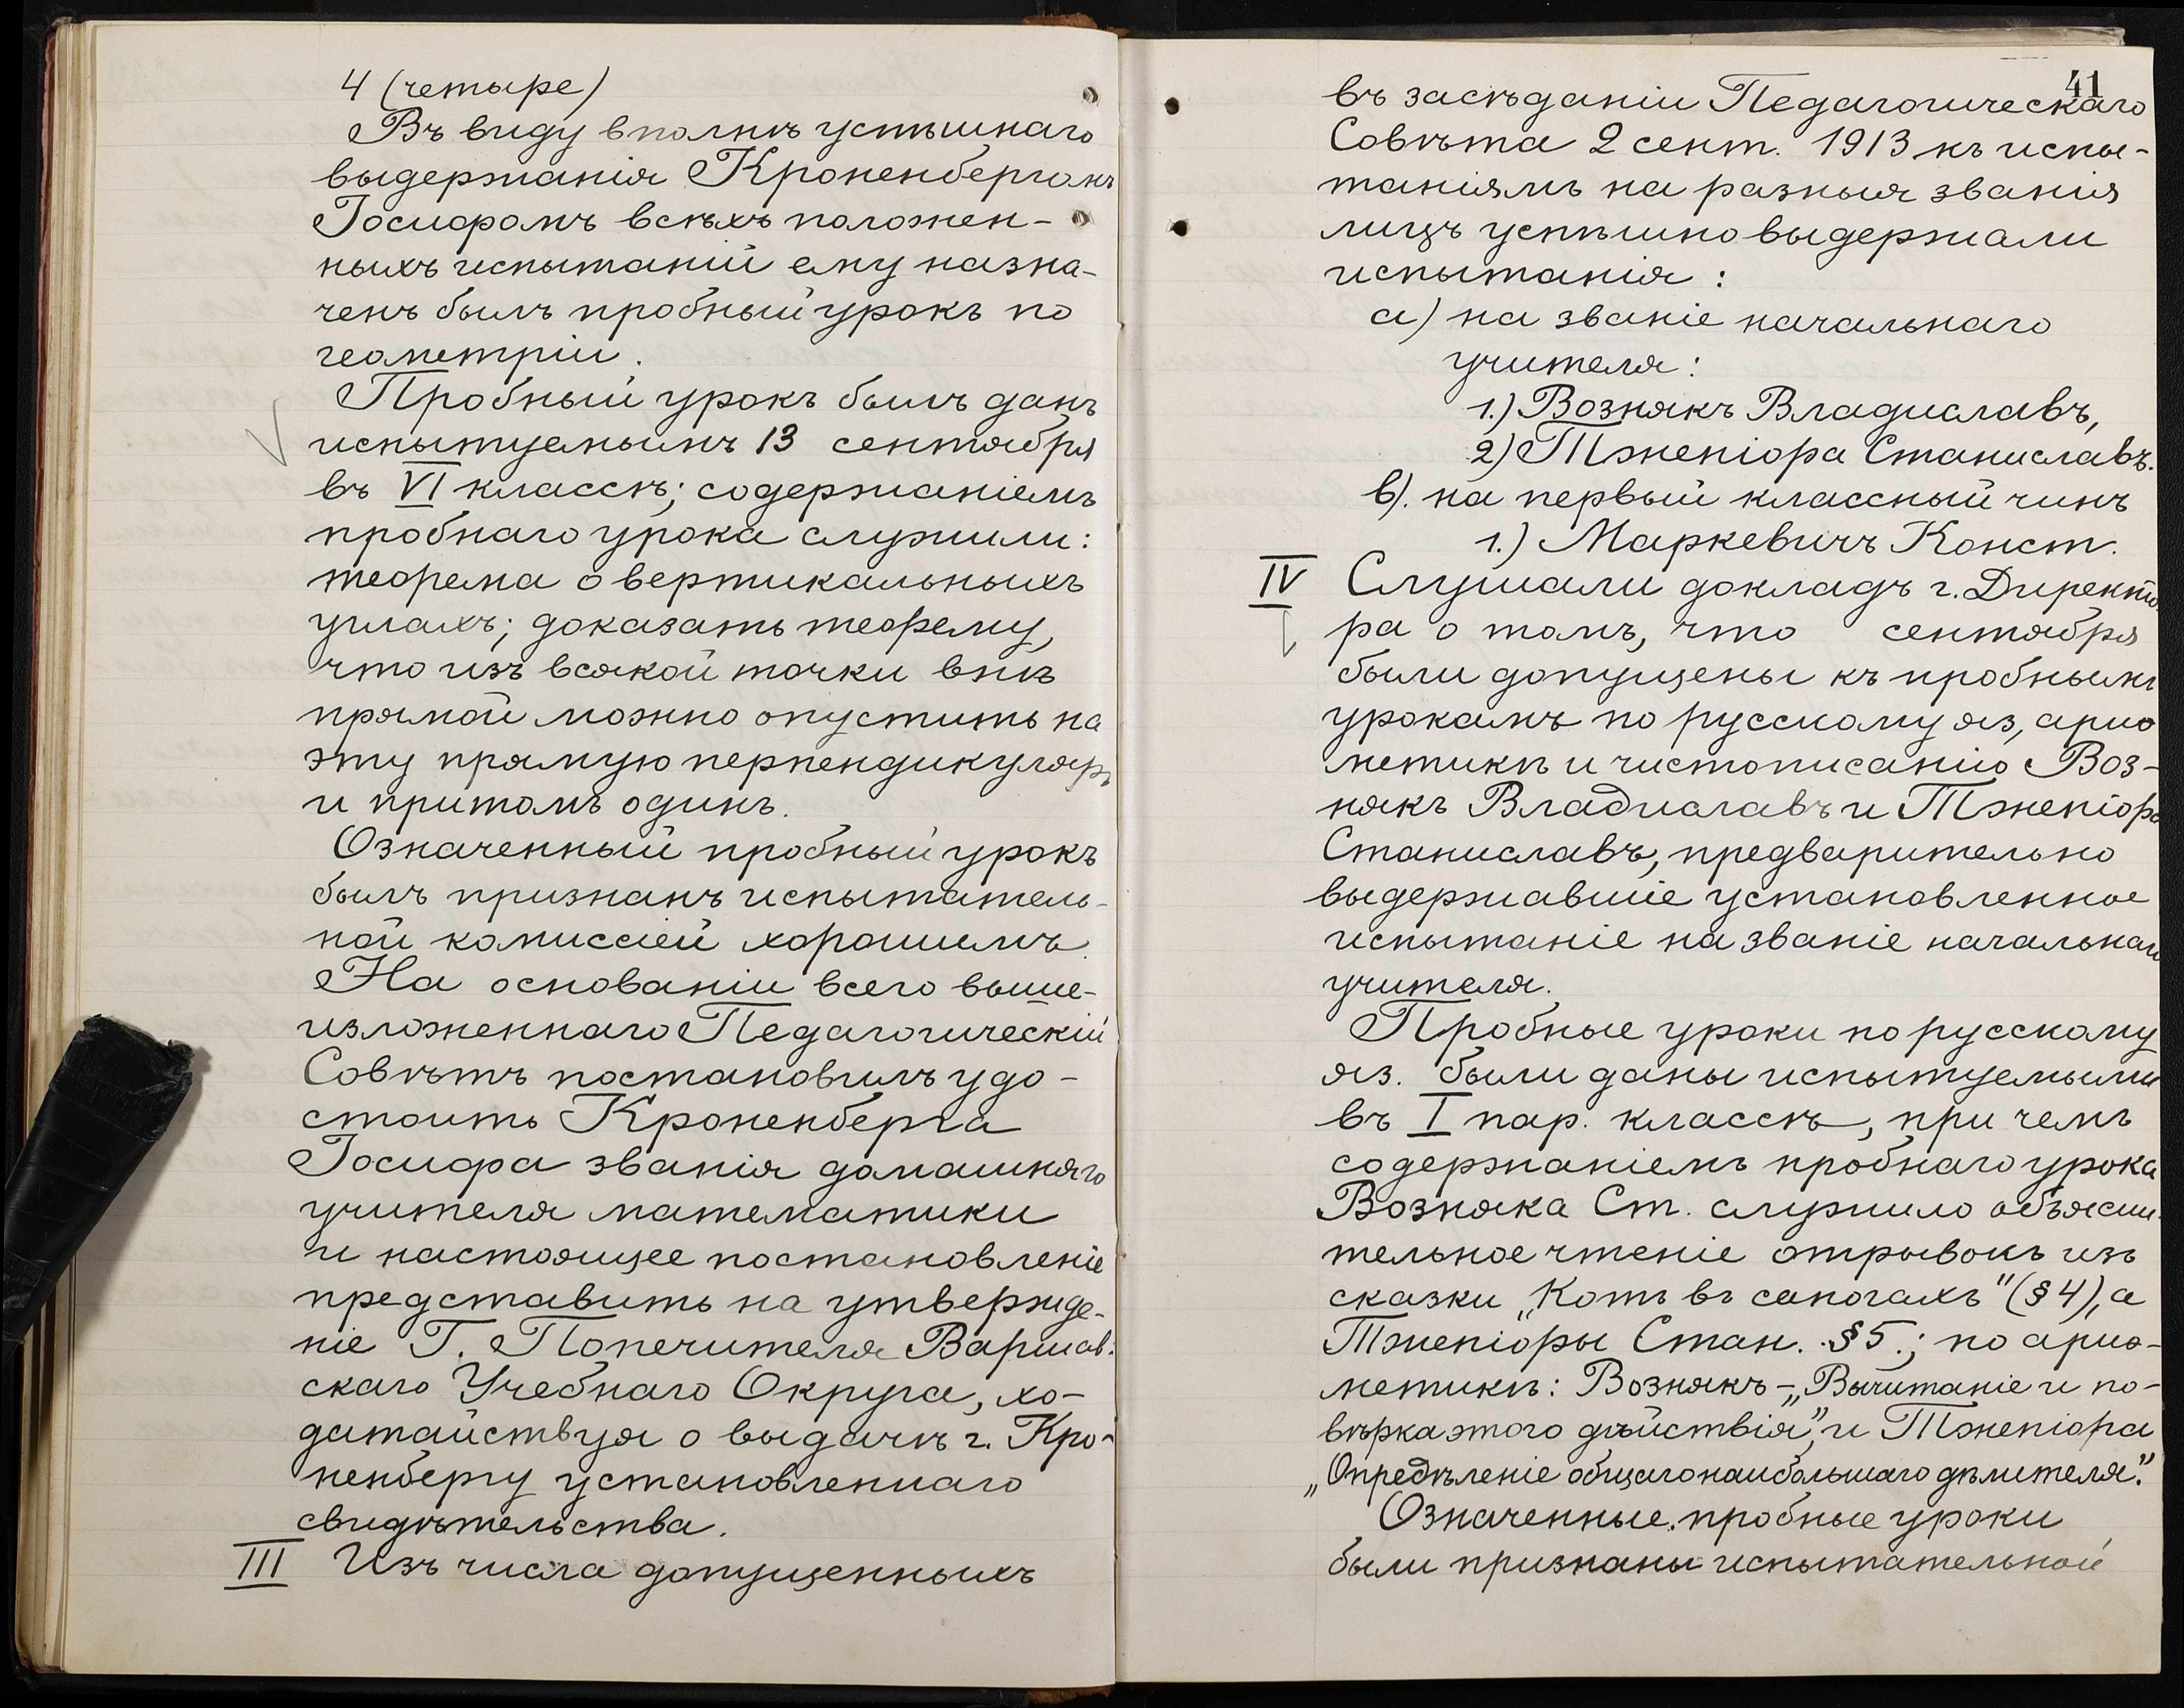 4 (четыре)
Въ виду вполнѣ успѣшнаго
выдержанія Кроненбергомъ
Іосифомъ всѣхъ положен-
ныхъ испытаній ему назна-
ченъ былъ пробный урокъ по
геометріи.
Пробный урокъ былъ данъ
испытуемымъ 13 сентября
въ VI классѣ; содержаніемъ
пробнаго урока служили:
теорема о вертикальныхъ
углахъ; доказать теорему,
что изъ всякой точки внѣ
прямой можно опустить на
эту прямую перпендикуляръ
и притомъ одинъ.
Означенный пробный урокъ
былъ признанъ испытатель-
ной комиссіей хорошимъ.
На основаніи всего выше-
изложеннаго Педагогическій
Совѣтъ постановилъ удо-
стоить Кроненберга
Іосифа званія домашняго
учителя математики
и настоящее постановленіе
представить на утвержде-
ніе Г. Попечителя Варшав-
скаго Учебнаго Округа, хо-
датайствуя о выдачѣ г. Кро-
ненбергу установленнаго
свидѣтельства.
III Изъ числа допущенныхъ
41
въ засѣданіи Педагогическаго
Совѣта 2 сент. 1913 къ испы-
таніямъ на разныя званія
лицъ успѣшно выдержали
испытанія:
а) на званіе начальнаго
учителя:
1.) Вознякъ Владиславъ,
2) Тженіора Станиславъ.
в). на первый классный чинъ
1.) Маркевичъ Конст.
IV Слушали докладъ г. Директо-
ра о томъ, что сентября
были допущены къ пробнымъ
урокамъ по русскому яз, ариѳ
метикѣ и чистописанію Воз-
някъ Владиславъ и Тженіора
Станиславъ, предварительно
выдержавшіе установленное
испытаніе на званіе начальнаго
учителя.
Пробные уроки по русскому
яз. были даны испытуемыми
въ I пар. классѣ, при чемъ
содержаніемъ пробнаго урока
Возняка Ст. служило объясни-
тельное чтеніе отрывокъ изъ
сказки „Котъ въ сапогахъ" (§ 4), а
Тженіоры Стан. §5.; по ариѳ-
метикѣ: Вознякъ - „Вычитаніе и по-
вѣрка этого дѣйствія", и Тженіора
„Опредѣленіе общаго наибольшаго дѣлителя".
Означенные пробные уроки
были признаны испытательной